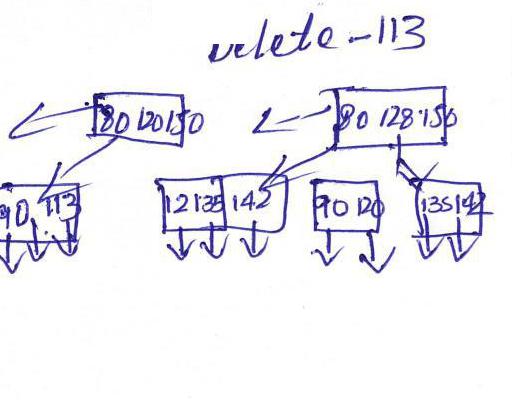 delete - 113
80 120 150
80 128 150
90 113
12 135 142
90 120
135 142